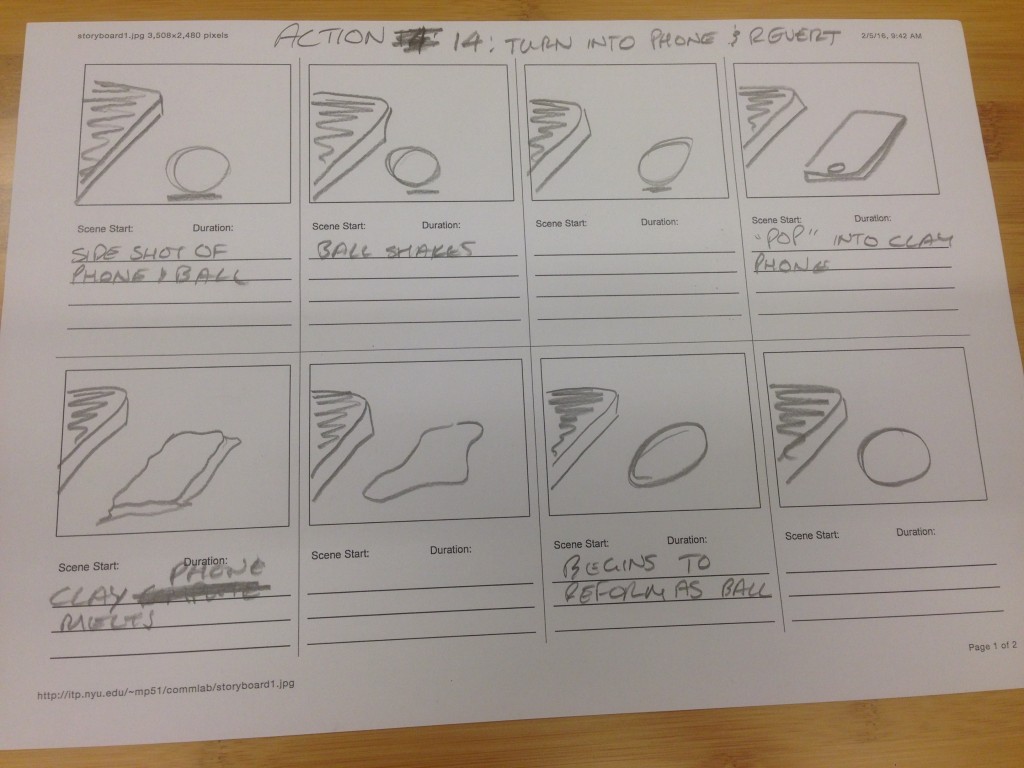 storyboard1.jpg 3,508×2,480 pixels
ACTION 14: TURN INTO PHONE & REVERT
2/5/16, 9:42 AM
Scene Start: Duration:
SIDE SHOT OF
PHONE & BALL
Scene Start: Duration:
BALL SHAKES
Scene Start: Duration:
Scene Start: Duration:
"POP" INTO CLAY
PHONE
Scene Start: Duration:
PHONE
CLAY
MELTS
Scene Start: Duration:
Scene Start: Duration:
BEGINS TO
REFORM AS BALL
Scene Start: Duration:
Page 1 of 2
http://itp.nyu.edu/~mp51/commlab/storyboard1.jpg